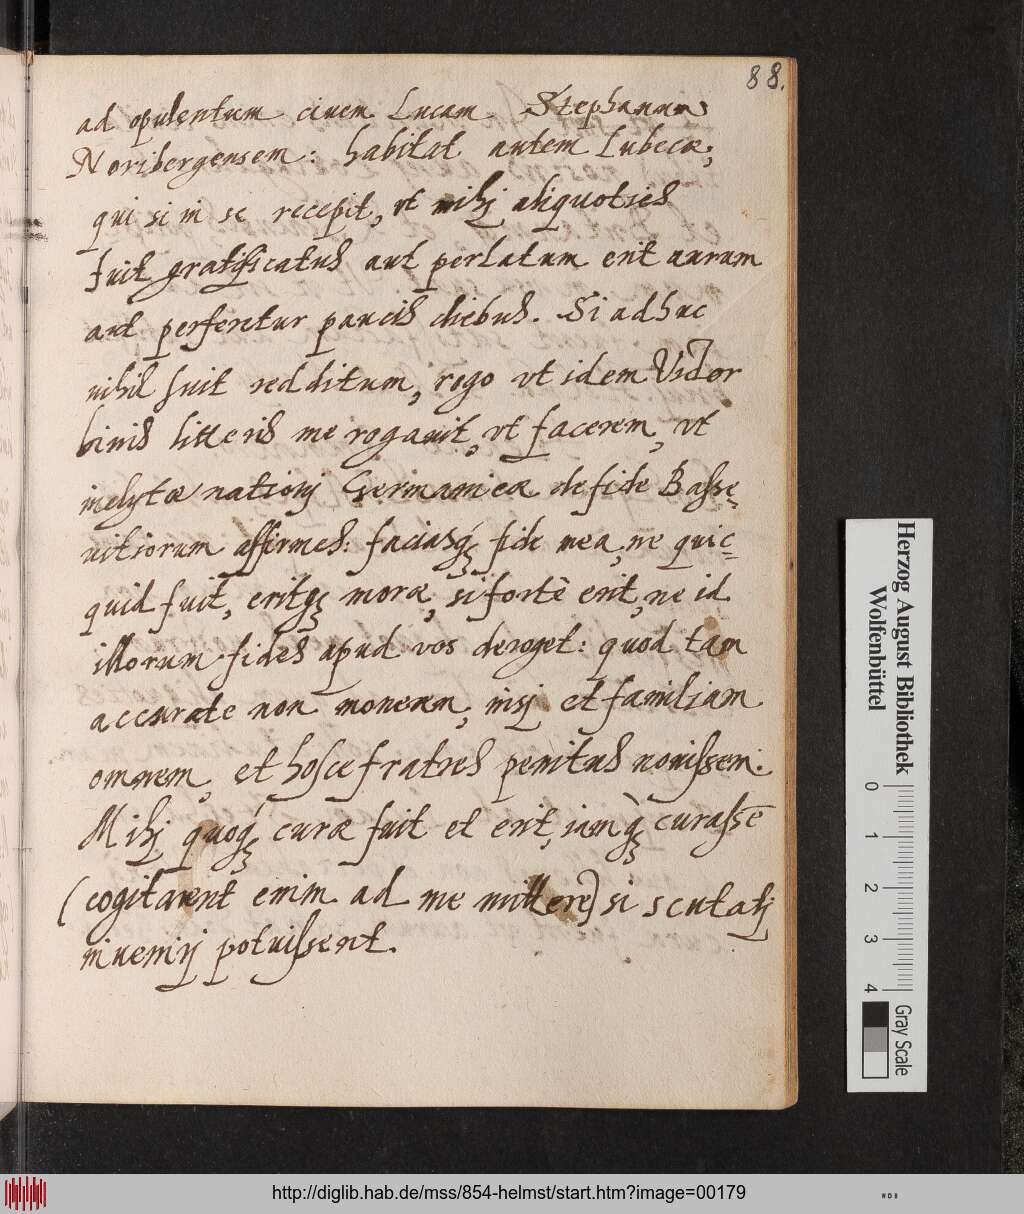 88.
ad opulentum civem Lucam Stephanum
Noribergensem: habitat autem Lubecæ,
qui si in se recepit, vt mihj aliquoties
fuit gratificatus aut perlatum erit aurum
aut perferetur paucis diebus. Si adhuc
nihil fuit redditum, rogo vt idem Victor
binis litteris me rogavit, vt facerem, vt
inclytæ nationj Germanicæ de fide Basse
vitiorum affirmes: faciasq́ fide mea, ne quic=
quid fuit, eritq moræ, si fortè erit, ne id
illorum fides apud vos deroget: quod tam
accurate non monerem, nisj et familiam
omnem, et hosce fratres penitus novissem.
Mihj quoq́ curæ fuit et erit, iamq̀ curassē
(cogitarent enim ad me mittere) si scutatj
inuenirj potuissent.
Herzog August Bibliothek
Wolfenbüttel
0 1 2 3 4
Gray Scale
http://diglib.hab.de/mss/854-helmst/start.htm?image=00179
WDB